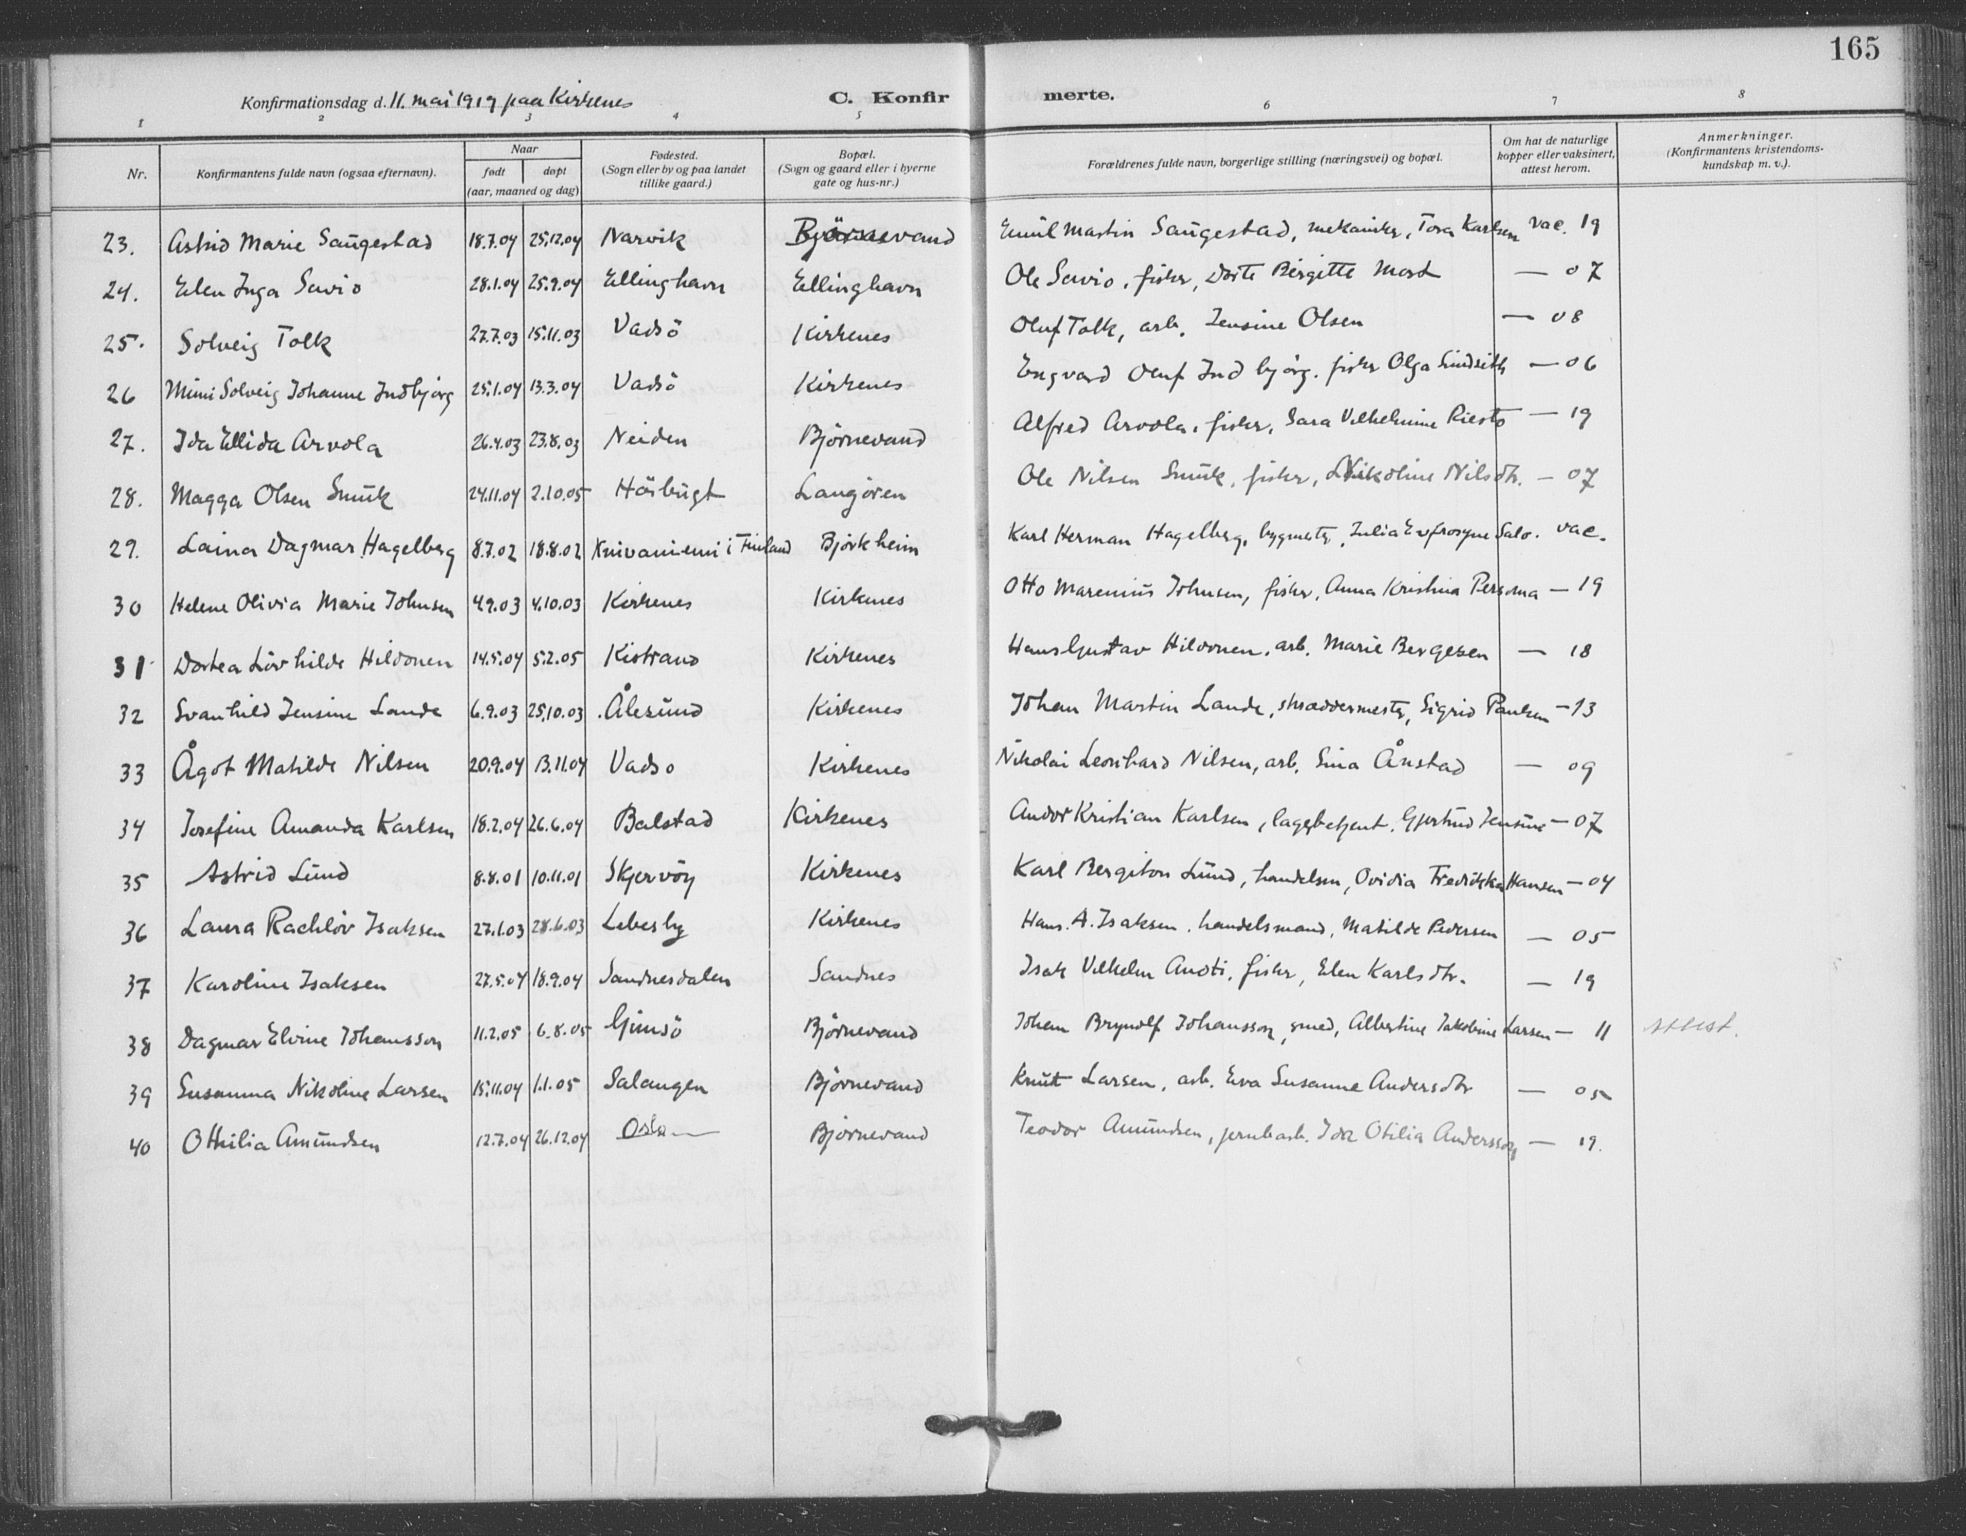 165
Konfirmationsdag d. 11. mai 1919 paa Kirkenes C. Konfirmerte.
1 2 3 4 5 6 7 8
Nr. Konfirmantens fulde navn (ogsaa efternavn). Naar født døpt (aar, maaned og dag) Fødested. (Sogn eller by og paa landet tillike gaard.) Bopæl. (Sogn og gaard eller i byerne gate og hus-nr.) Forældrenes fulde navn, borgerlige stilling (næringsvei) og bopæl. Om hat de naturlige kopper eller vaksinert, attest herom. Anmerkninger. (Konfirmantens kristendomskundskap m. v.).
23. Astrid Marie Saugestad 18.7.04 25.12.04 Narvik Björnevand Emil Martin Saugestad, mekaniker, Tora Karlsen vac. 19
24. Elen Inga Savio 28.1.04 25.9.04 Ellinghavn Ellinghavn Ole Savio, fisker, Dorte Birgitte Mort — 07
25. Solveig Tolk 27.7.03 15.11.03 Vadsö Kirkenes Oluf Tolk, arb. Jensine Olsen — 08
26 Mimi Solveig Johanne Indbjörg 25.1.04 13.3.04 Vadsö Kirkenes Engvard Oluf Indbjörg. fisker Olga — 06
27. Ida Ellida Arvola 26.4.03 23.8.03 Neiden Björnevand Alfred Arvola, fisker, Sara Vilhelmine Riesto — 19
28. Magga Olsen Smuk 24.11.04 2.10.05 Langören Ole Nilsen Smuk, fisker, Nikoline Nilsdtr. — 07
29. Laina Dagmar Hagelberg 8.7.02 18.8.02 Knivaniemi i Finland Björkheim Karl Herman Hagelberg, bygmester, Julia Eufrosyne Salo. vac.
30 Helene Olivia Marie Johnsen 4.9.03 4.10.03 Kirkenes Kirkenes Otto Marenius Johnsen, fisker, Anna Kristina Persoma — 19
31 Dortea Lövhilde Hildonen 14.5.04 5.2.05 Kistrand Kirkenes Hans Gustav Hildonen, arb. Marie Bergesen — 18
32 Svanhild Jensine Lande 6.9.03 25.10.03 Ålesund Kirkenes Johan Martin Lande, skræddermester, Sigrid Paulsen — 13
33 Ågot Matilde Nilsen 20.9.04 13.11.04 Vadso Kirkenes Nikolai Leonhard Nilsen, arb. Sina Ånstad — 09
34 Josefine Amanda Karlsen 18.2.04 26.6.04 Balstad Kirkenes Andor Kristian Karlsen, lagerbetjent. Gjertrud Jensine — 07
35 Astrid Lund 8.8.01 10.11.01 Skjervöy Kirkenes Karl Bergiton Lund, handelsm, Ovidia Fredrikka Hansen — 04
36 Laura Rachlöv Isaksen 27.1.03 28.6.03 Lebesby Kirkenes Hans. A. Isaksen, handelsmand, Matilde Pedersen — 05
37 Karoline Isaksen 27.5.04 18.9.04 Sandnesdalen Sandnes Isak Vilhelm Anoti, fisker, Elen Karlsdtr. — 19
38 Dagmar Elvine Johansson 11.2.05 6.8.05 Gimsö Björnevand Johan Brynolf Johansson, smed, Albertine Jakobine Larsen — 11 attest.
39 Susanna Nikoline Larsen 15.11.04 1.1.05 Salangen Björnevand Knut Larsen, arb. Eva Susanne Andersdtr — 05
40 Othilia Amundsen 12.7.04 26.12.04 Björnevand Teodor Amundsen, jernbarb. Ida Otilia Andersson — 19.